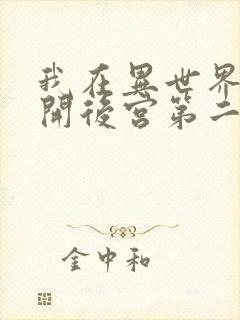 我在異世界
開後宮第二
金中和